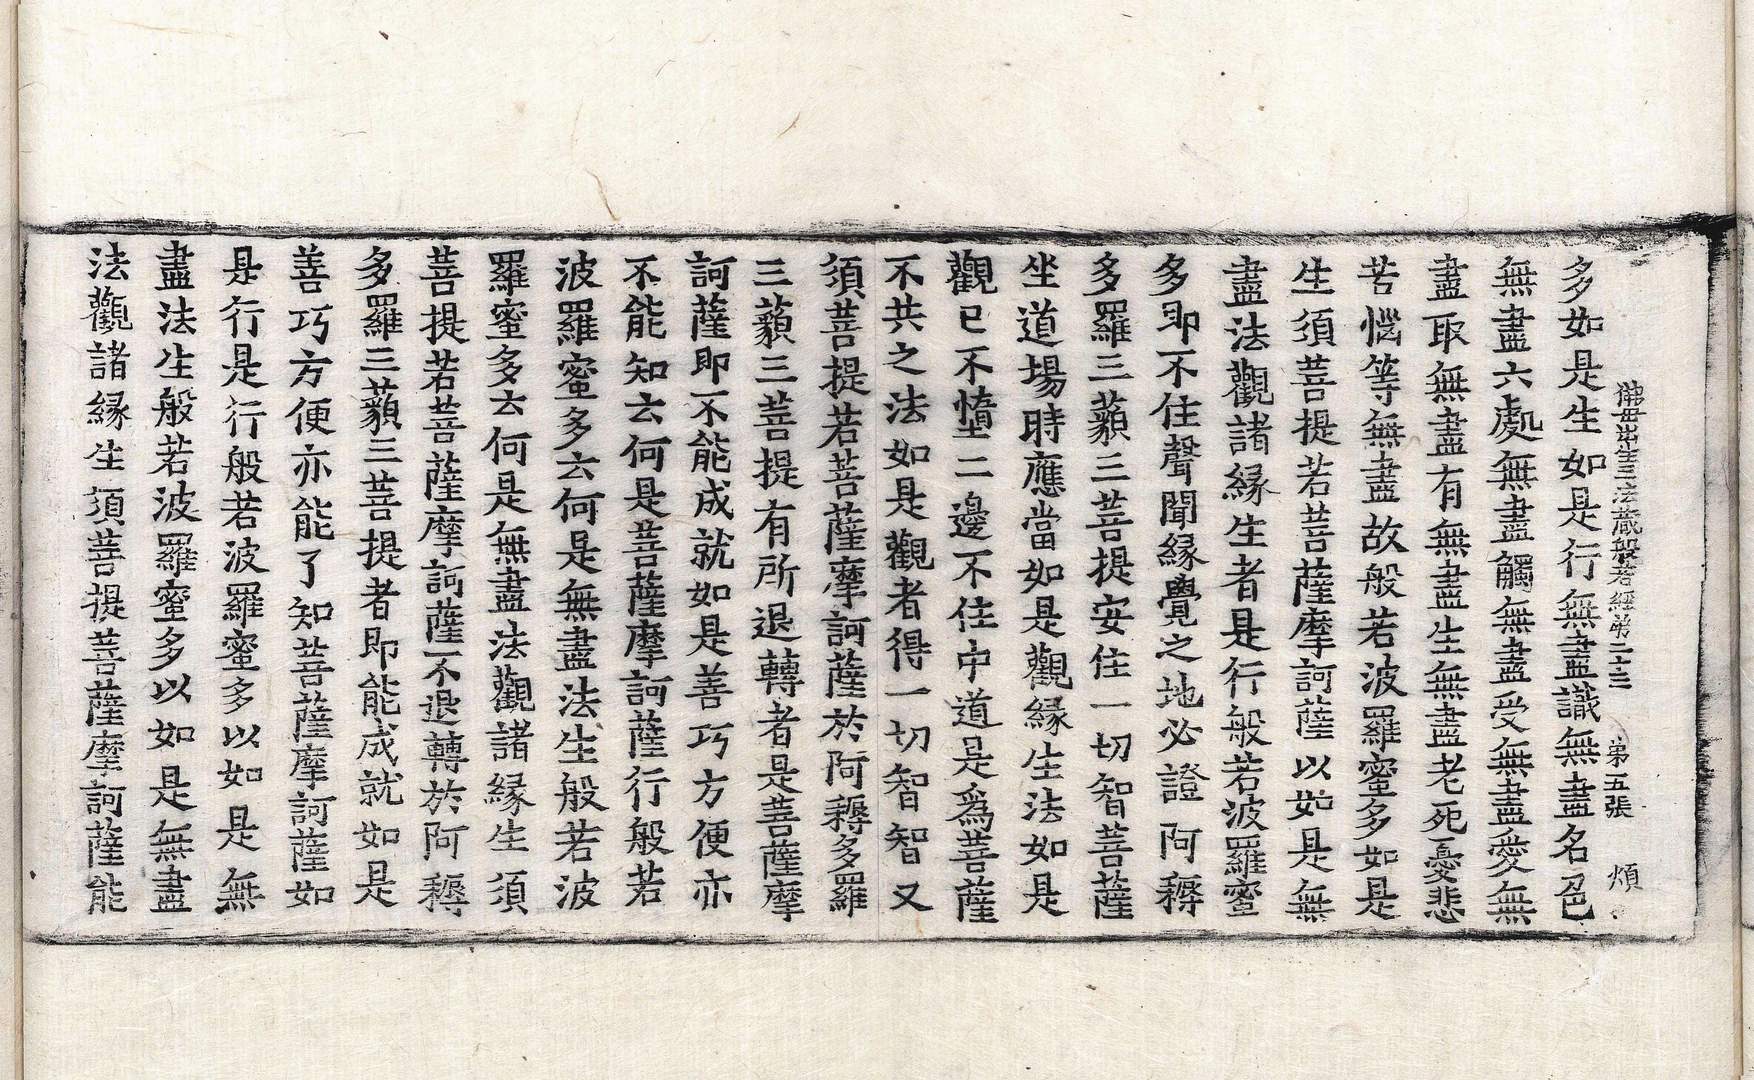 佛母出生三法藏般若經第二十三　第五張　煩
多如是生如是行無盡識無盡名色
無盡六處無盡觸無盡受無盡愛無
盡取無盡有無盡生無盡老死憂悲
苦惱等無盡故般若波羅蜜多如是
生須菩提若菩薩摩訶薩以如是無
盡法觀諸緣生者是行般若波羅蜜
多即不住聲聞緣覺之地必證阿耨
多羅三藐三菩提安住一切智菩薩
坐道場時應當如是觀緣生法如是
觀已不墮二邊不住中道是爲菩薩
不共之法如是觀者得一切智智又
須菩提若菩薩摩訶薩於阿耨多羅
三藐三菩提有所退轉者是菩薩摩
訶薩即不能成就如是善巧方便亦
不能知云何是菩薩摩訶薩行般若
波羅蜜多云何是無盡法生般若波
羅蜜多云何是無盡法觀諸緣生須
菩提若菩薩摩訶薩不退轉於阿耨
多羅三藐三菩提者即能成就如是
善巧方便亦能了知菩薩摩訶薩如
是行是行般若波羅蜜多以如是無
盡法生般若波羅蜜多以如是無盡
法觀諸緣生須菩提菩薩摩訶薩能